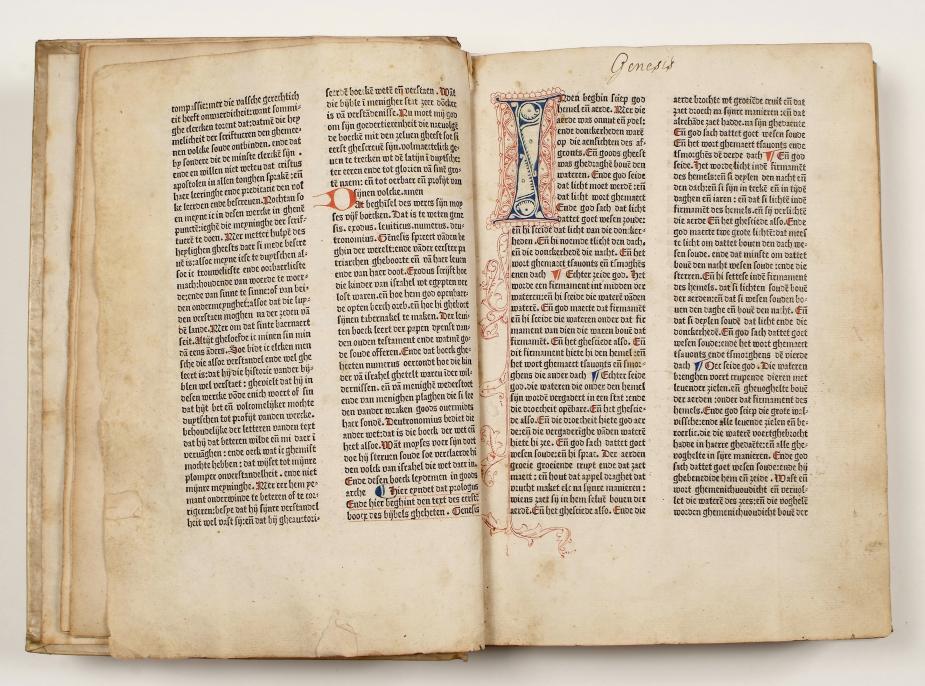 compassie: mer die valsche gerechtich
eit heeft onwaerdicheit: want sommi-
ghe clercken torent dat: datmē die hey
melicheit der scriftueren den ghemee-
nen volcke soude ontbinden. ende dat
by sondere die de minste clerckē sijn.
ende en willen niet weten dat cristus
apostolen in allen tonghen sprakē: eñ
haer leeringhe ende predicatie den vol
ke leerden ende bescreuen. Nochtan so
en meyne ic in desen wercke in ghenē
tuerē te doen. Mer metter hulpe des
heylighen gheests daer si mede bescre
uē is: alsoe meyne icse te duytschen al-
soe ic trouwelicste ende oorbaerlicste
mach: houdende van woerde te woer-
de: ende van sinne te sinne: of van bei-
den ondermeynghet: alsoe dat die lup-
den verstaen moghen na der zeden vā
dē lande. Mer om dat sinte baernaert
seit. Altijt gheloefde ic minen sin min
sche die alsoe verstandel ende wel ghe
leert is: dat hij die historie vander bij-
blen wel verstaet: ghevielt dat hij in
desen wercke vōde enich woert of sin
dat hijt bet eñ volcomeliker mochte
duytschen tot profijt vanden wercke.
behoudelike der letteren vanden text
dat hij dat beteren wilde eñ mi daer ī
mochte hebben: dat wijset tot mijnre
plomper onverstandelheit. ende niet
mijnre meyninghe. Mer eer hem ye-
mant onderwinde te beteren of te cor-
rigeren: bespe dat hij sijnre verstandel
heit wel vast sij: eñ dat hij gheauctori-
seerdē boeckē wetē eñ verstaen. Wāt
die bijble ī menigher stat zere dōcker
is vā verstādenisse. Nu moet mij god
om sijn goedertierenheit die nauolgē
de boeckē mit den zeluen gheest soe si
eerst ghescreuē sijn. volmaectelick ge-
uen te trecken wt dē latijn ī duytsche:
ter eeren ende tot glorien vā sinē gro-
tē naem: eñ tot oorbaer eñ profijt van
sijnen volcke. amen
Dat beghīsel des wercs sijn moy
ses vijf boecken. Dat is te weten gene
sis. exodus. leuiticus. numerus. deu-
tronomius. Genesis spreect vādē be
ghin der werelt: ende vāder eerster pa
triarchen gheboerte eñ vā haer leuen
ende van haer doot. Exodus scrijft hoe
die kinder van israhel wt egypten ver
lost waren. eñ hoe hem god openbaer-
de opten berch oreb. eñ hoe hi gheboet
sijnen tabernakel te maken. Der leui-
ten boeck leert der papen dyenst van-
den ouden testament ende watmē go-
de soude offeren. Ende dat boeck ghe-
heeten numerus oorcondt hoe die kin
der vā israhel ghetelt waren der wil-
dernissen. eñ vā menighē wederstoet
ende van menighen plaghen die si lee
den vander wraken goods ouermids
haer sondē. Deutronomius bediet die
ander wet: dat is die boeck der wet eñ
heet also. Wāt moyses voer sijn doot
doe hij steruen soude soe verclaerde hi
den volck van israhel die wet daer in.
Ende desen boeck leydemen in goods
arche Hier eyndet dat prologus
Ende hier beghint den text des eersten
boocx des bijbels gheheten. Genesis
Genesis
Inden beghin sciep god
hemel eñ aerde. Mer die
aerde was onnut eñ ydel:
ende donckerheden warē
op die aensichten des af-
gronts. Eñ goods gheest
was ghedraghē bouē den
wateren. Ende god seide
dat licht moet werdē: eñ
dat licht wert gemaect.
Ende god sach dat licht
dattet goet wesen soude:
eñ hi sceide dat licht van die doncker-
heden. Eñ hi noemde tlicht den dach.
eñ die donckerhedē die nacht. Eñ het
wort ghemaect tsauonts eñ tsmorgh
enen dach Echter zeide god. Het
worde een firmament int midden der
wateren: eñ hi sceide die waterē vādē
waterē. Eñ god maecte dat firmamēt
eñ hi sceide die wateren onder dat fir
mament van dien die waren bouē dat
firmamēt. Eñ het ghesciede also. Eñ
dit firmament hiete hi den hemel: eñ
het wort ghemaect tsauonts eñ smor-
ghens die ander dach Echter seide
god. die wateren die onder den hemel
sijn wordē vergadert in een stat: ende
die droecheit opēbare. Eñ het ghescie-
de also. Eñ die droecheit hiete god aer
de: eñ die vergaderighe der waterē
hiete hi zee. Eñ god sach dattet goet
wesen soude: eñ hi sprac. Der aerden
groeie groeiende cruyt ende dat zaet
maect: eñ hout dat appel draghet dat
vrucht maket elc na sijnre manieren:
wiens zaet sij in hem seluē bouen der
aerdē. Eñ het ghesciede also. Ende die
aerde brochte wt groeiēde cruit eñ dat
zaet droech na sijnre manieren: eñ dat
Eñ god sach dattet goet wesen soude
Eñ het wort ghemaect tsauonts ende
tsmorghēs dē derde dach Eñ god
seide. Het wordē licht indē firmamēt
des hemels: eñ si deylen den nacht eñ
den dach: eñ si sijn in tekē eñ in tijdē
daghen eñ iaren: eñ dat si lichtē indē
firmamēt des hemels. eñ si verlichtē
die aerde Eñ het ghesciede also. Ende
god maecte twe grote lichtē: dat mees
te licht om dattet bouen den dach we-
sen soude. ende dat minste om dattet
bouē den nacht wesen soude: ende die
sterren. Eñ hi settese indē firmament
des hemels. dat si lichten soudē bouē
der aerden: eñ dat si wesen souden bo-
uen den daghe eñ bouē den nacht. Eñ
dat si deylen soudē dat licht ende die
donckerhedē. Eñ god sach dattet goet
wesen soude: ende het wort ghemaect
tsauonts ende tsmorghens dē vierde
dach Oec seide god. Die wateren
brenghen voert crupende dieren met
leuender zielen. eñ gheuoghelte bouē
der aerden: onder dat firmament des
hemels. Ende god sciep die grote wal-
vissche: ende alle leuende zielen eñ be-
roerlic. die die waterē voertghebrocht
hadde in haerre ghedaēte: eñ alle ghe-
voghelte in sijnre manieren. Ende god
sach dattet goet wesen soude: ende hij
ghebenedide hem eñ zeide. Wast eñ
wort ghemenichuoudicht eñ veruol-
let die waterē des zees: eñ die voghelē
worden ghemenichuoudicht bouē der